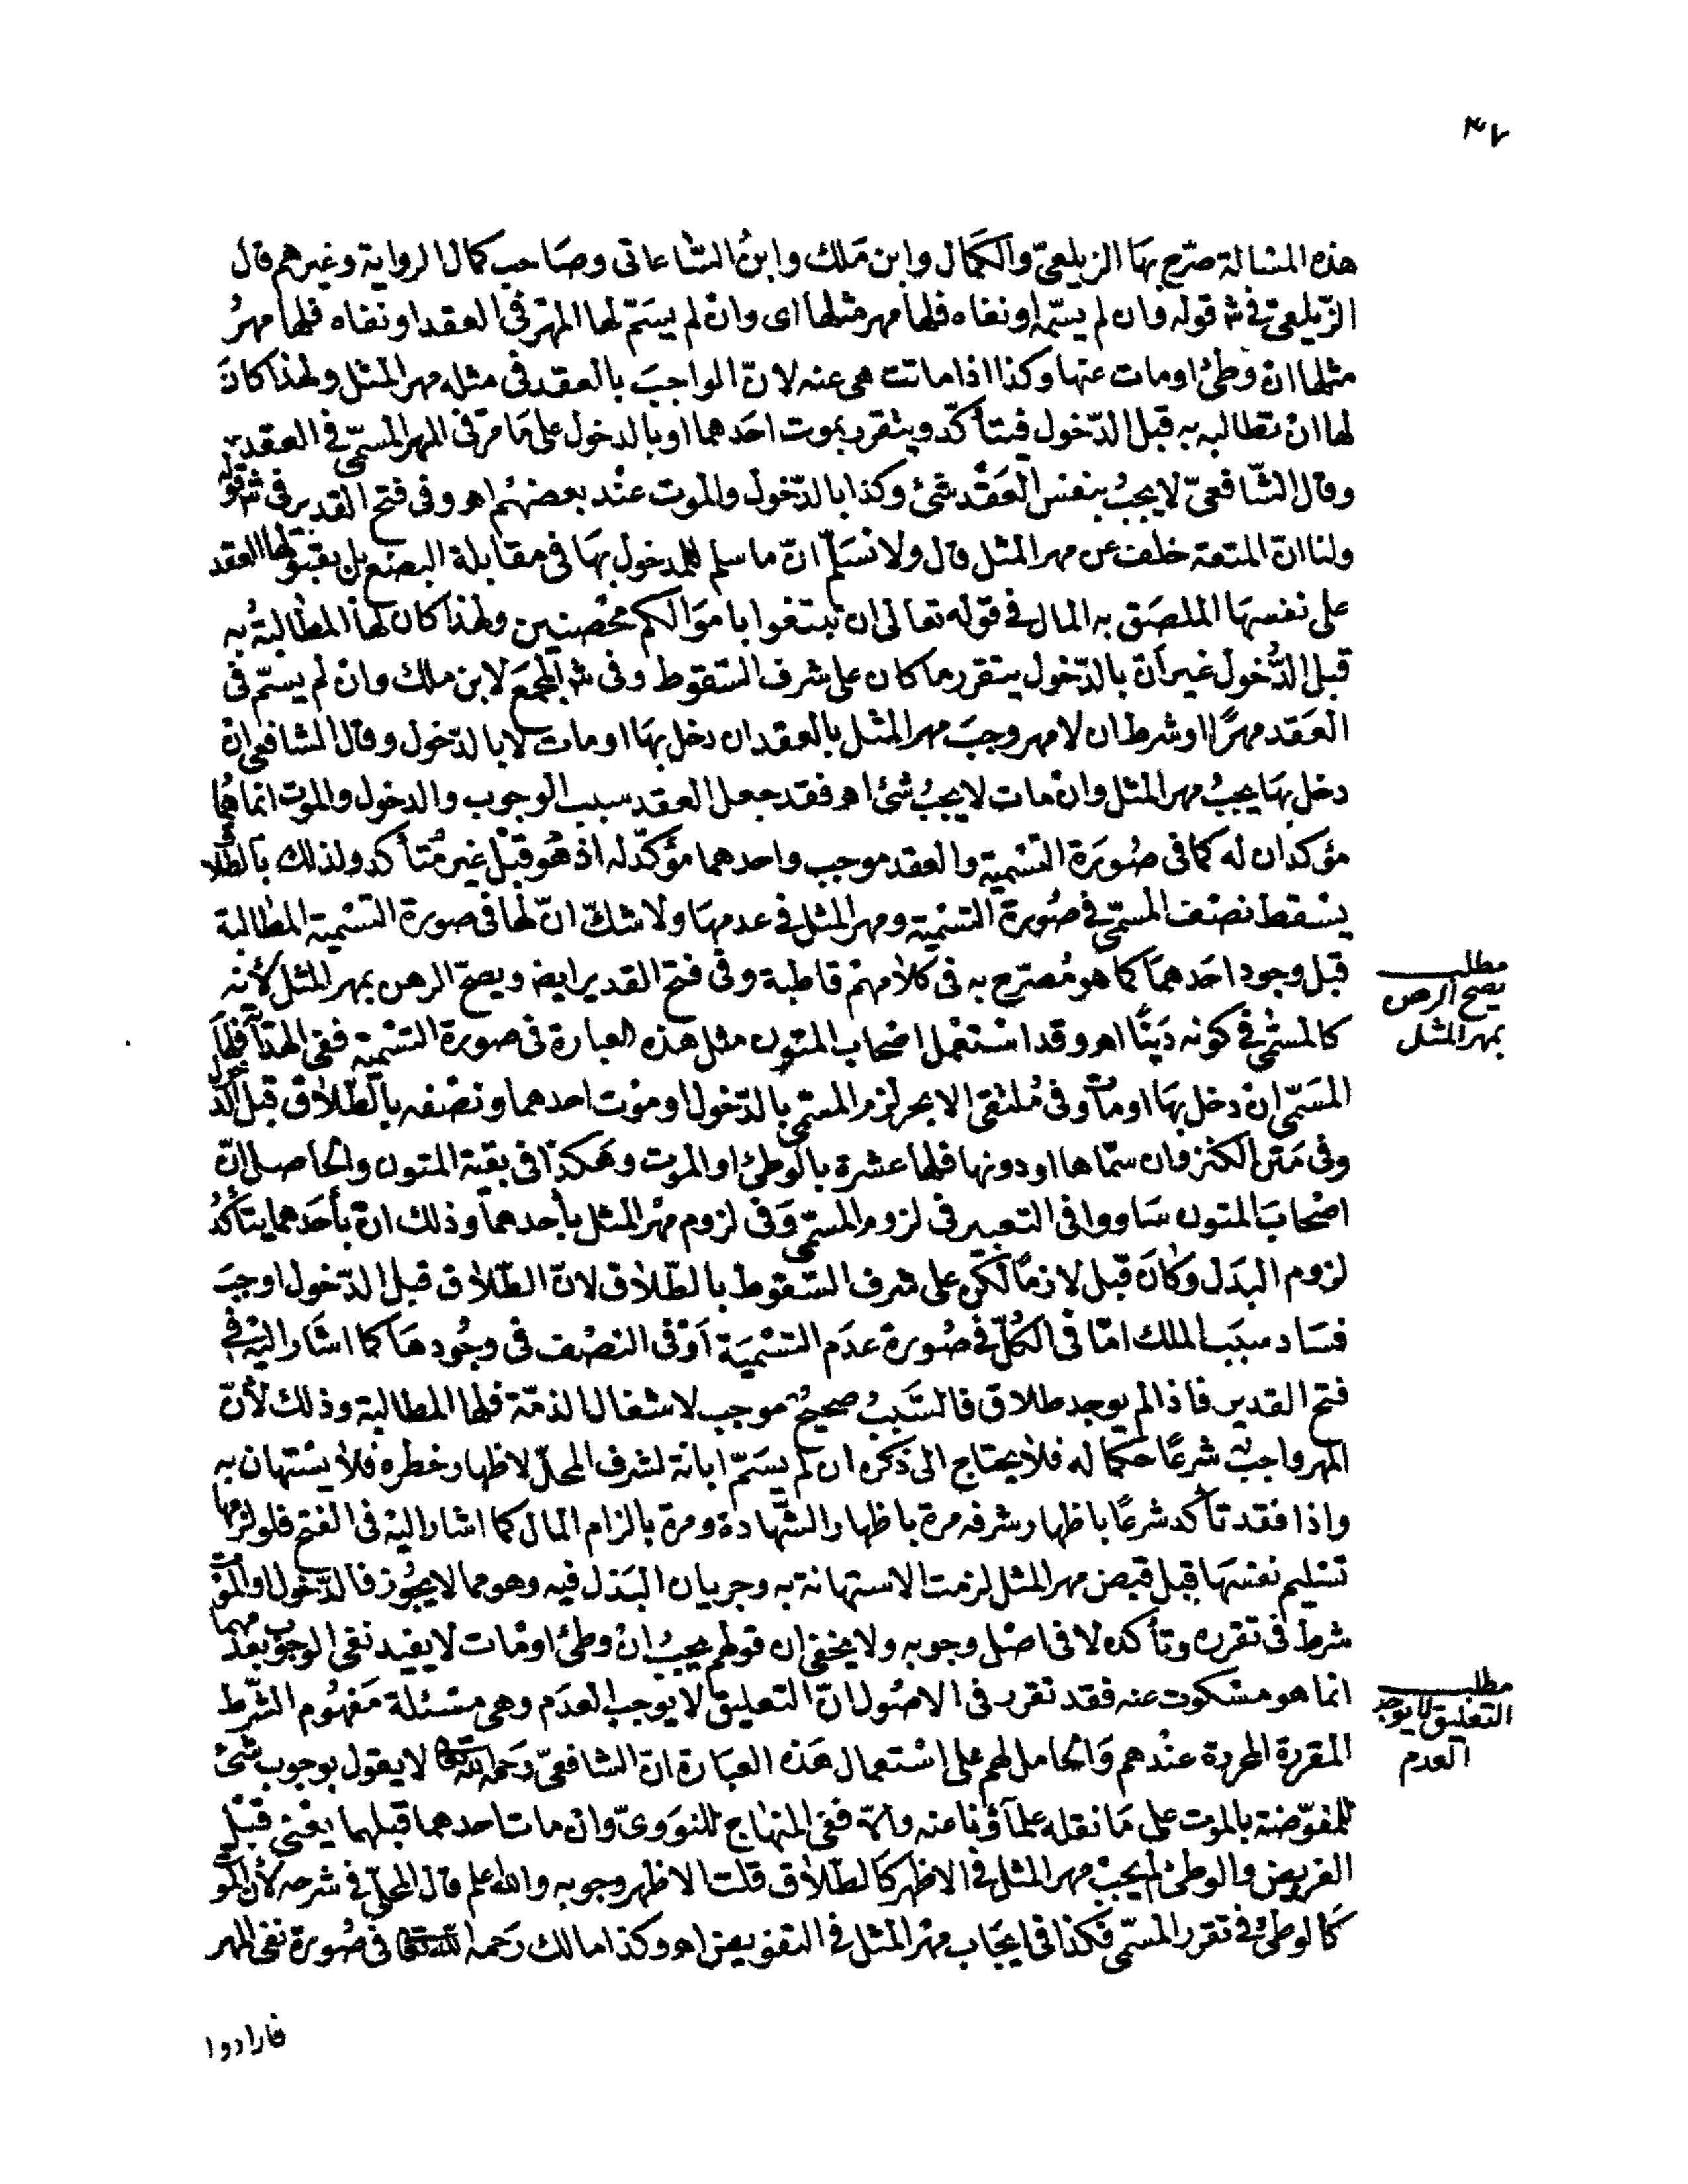 ٤٧
هذه المسالة صرّح بها الزيلعيّ والكمال وابن ملك وابن الساعاتى وصاحب كمال الرواية وغيرهم قال
الزّيلعىّ فى ش قوله وان لم يسمّه او نفاه فلها مهر مثلها اى وان لم يسَمّ لها المهر فى العقد او نفاه فلها مهرُ
مثلها ان وطئ او مات عنها وكذا اذا ماتت هى عنه لانّ الواجبَ بالعقد فى مثله مهر المثل ولهذا كانَ
لها انْ تطالبه به قبل الدّخول فيتأكّد ويتقرر بموت احدهما او بالدخول على مَا مرّ فى المهر المسمّى فى العقد
وقال الشّافعىّ لا يجبُ بنفس العَقْد شئ وكذا بالدّخول والموت عنْد بعضهُم اهـ وفى فتح القدير فى ش قوله
ولنا انّ المتعة خلف عن مهر المثل قال ولا نسَلّم انّ ما سلم للمدخول بهَا فى مقابلة البضع بل بقبولها العقد
على نفسهَا الملصَق به المال فى قوله تعالى ان تبتغوا باموَالكم محْصنين ولهذا كان لها المطالبةُ به
قبل الدُّخول غير انّ بالدّخول يتقرر ما كان على شرف السّقوط وفى ش المجمَع لابن ملك وانْ لم يسمّ فى
العَقد مهرًا او شرط ان لا مهر وجبَ مهر المثل بالعقد ان دخل بهَا او مات لا بالدّخول وقال الشافعى انْ
دخل بهَا يجبُ مهر المثل وانْ مات لا يجبُ شئ اهـ فقد جعل العقد سبب الوجوب والدخول والموت انما هُما
مؤكدان له كما فى صُورَة التسْمية والعقد موجب واحدهما مؤكّد له اذ هُو قبْل غير مُتأكد ولذلك بالطّلاق
يسْقط نصْف المسمّى فى صُورة التسْمية ومهر المثل فى عدمهَا ولا شكّ انّ لها فى صورة التسْمية المطالبة
قبل وجود احَدهمَا كما هو مُصرّح به فى كلامهمْ قاطبة وفى فتح القدير ايض ويصحّ الرهن بمهر المثل لأنه
كالمسمّى فى كونه دَينًا اهـ وقد استعْمل اصْحاب المتون مثل هذه العبارة فى صورة التسْمية ففى الهداية فلها
المسَمّى انْ دخل بهَا او مات وفى مُلتقى الابحر لزم المسمّى بالدّخول او موْت احدهما ونصْفه بالطّلاق قبل الدّخول
وفى مَتن الكنز وان سمّاها او دونها فلها عشرة بالوطئ او الموت وهَكذا فى بقية المتون والحاصل انّ
اصْحابَ المتون سَاووا فى التعبير فى لزوم المسمّى وَفى لزوم مهْر المثل بأحدهما وذلك انّ بأحَدهما يتأكّدُ
لزوم البدَل وكانَ قبل لازمًا لكن على شرف السّقوط بالطّلاق لانّ الطّلاق قبل الدّخول اوجبَ
فسَاد سبَب الملك امّا فى الكُلّ فى صُورة عدَم التسْميَة اوْ فى النصْف فى وجُودهَا كما اشَار اليْه فى
فتح القدير فاذا لم يوجد طلاق فالسّببُ صحيحٌ موجب لاشغال الذمّة فلها المطالبة وذلك لأنّ
المهر واجبٌ شرعًا حكما له فلا يحتاج الى ذكره ان لم يسَمّ ابانة لشرف المحلّ لاظهار خطره فلا يسْتهان به
واذا فقد تأكد شرعًا باظهار شرفه مرة باظهار الشّهادة ومرة بالزام المال كما اشار اليْه فى الفتح فلو لزمها
تسْليم نفسهَا قبل قبض مهر المثل لزمت الاستهانة به وجريان البَذل فيه وهو مما لا يجُوز فالدّخول او الموت
شرط فى تقرره وتأكده لا فى اصْل وجوبه ولا يخفى ان قولهم يجبُ انْ وطئ او مات لا يفيد نفى الوجوب بعدمهما
انما هو مسْكوت عنه فقد تقرر فى الاصُول انّ التعليق لا يوجب العدَم وهى مسْئلة مَفهُوم الشّرط
المقررة المحررة عندهم وَالحامل لهم على استعمال هَذه العبَارة انّ الشافعىّ رَحمه الله تعالى لا يقول بوجوب شئ
للمفوّضة بالموت على مَا نقله علماؤنا عنه والا ففى المنهاج للنوَوىّ وان مات احدهما قبلهما يعْنى قبْل
الفريض والوطئ لم يجبْ مهر المثل فى الاظهر كالطّلاق قلت الاظهر وجوبه والله اعلم قال المحلّىّ فى شرحه لأن الموت
كالوطئ فى تقرر المسمّى فكذا فى ايجَاب مهْر المثل فى التفويض اهـ وكذا مالك رَحمه الله تعالى فى صُورة نفى المهر
مطلب
يصح الرهن
بمهر المثل
مطلب
التعليق لا يوجب
العدم
فارادوا